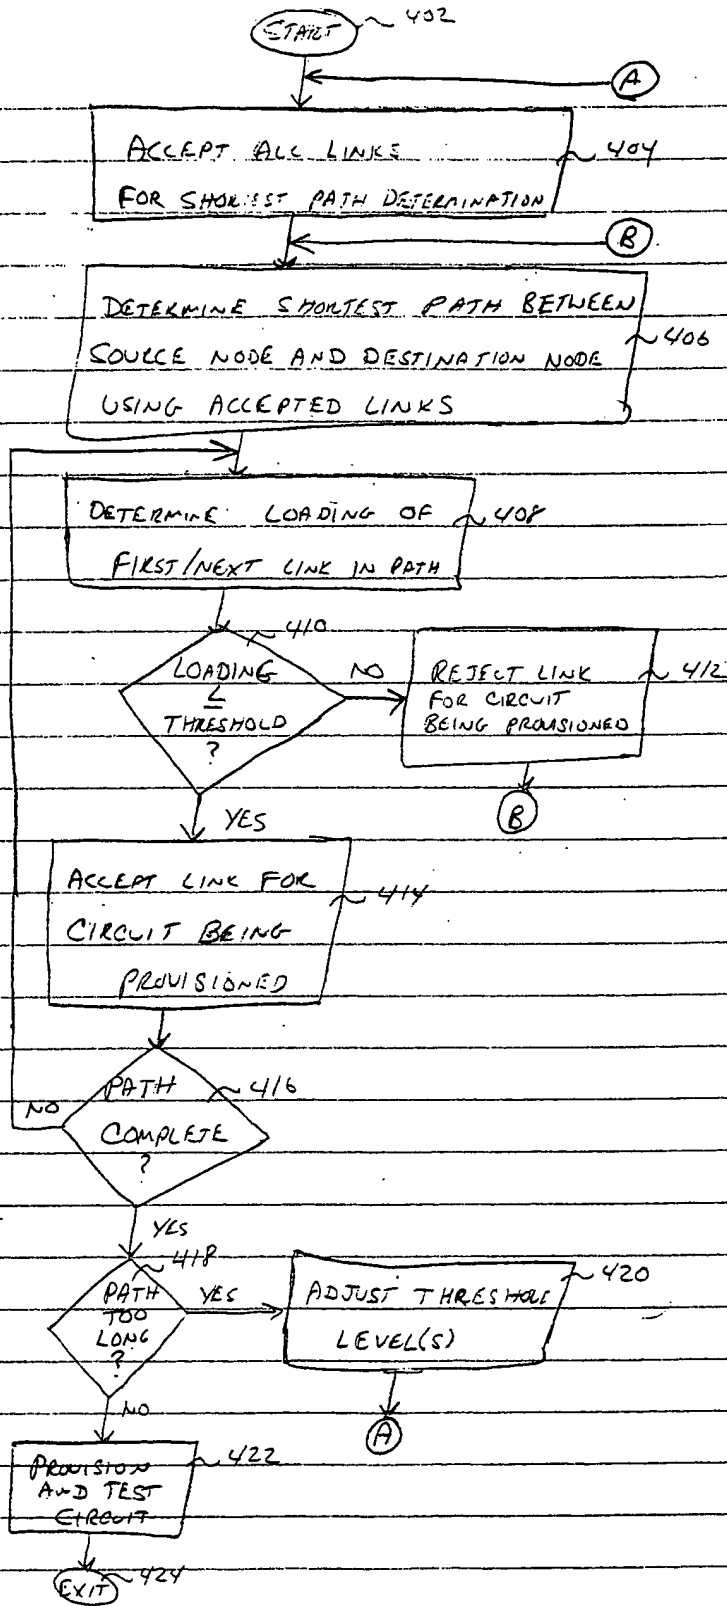 START 402
A
ACCEPT ALL LINKS
404
FOR SHORTEST PATH DETERMINATION
B
DETERMINE SHORTEST PATH BETWEEN
406
SOURCE NODE AND DESTINATION NODE
USING ACCEPTED LINKS
DETERMINE LOADING OF
408
FIRST/NEXT LINK IN PATH
410
LOADING
≤
THRESHOLD
?
NO
REJECT LINK
412
FOR CIRCUIT
BEING PROVISIONED
B
YES
ACCEPT LINK FOR
414
CIRCUIT BEING
PROVISIONED
PATH
416
COMPLETE
?
NO
YES
418
PATH
TOO
LONG
?
YES
ADJUST THRESHOLD
420
LEVEL(S)
A
NO
PROVISION
422
AND TEST
CIRCUIT
EXIT 424